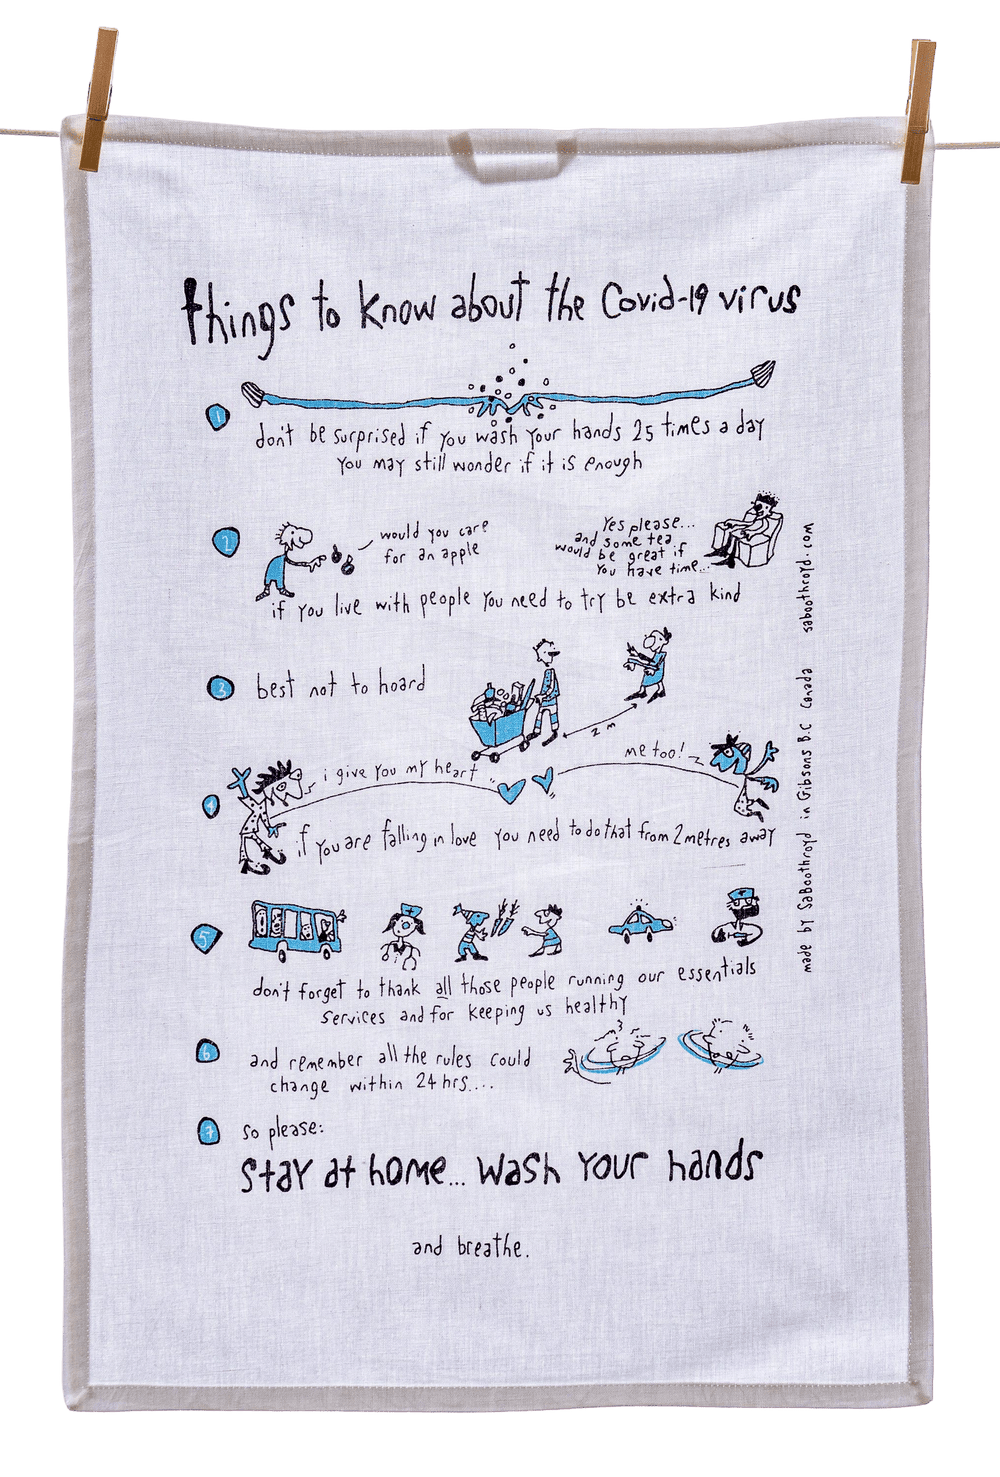 things to know about the Covid-19 virus
1
don't be surprised if you wash your hands 25 times a day
you may still wonder if it is enough
2
would you care
for an apple
Yes please...
and some tea
would be great if
you have time...
if you live with people you need to try be extra kind
3
best not to hoard
2 m
4
i give you my heart
me too!
if you are falling in love you need to do that from 2 metres away
5
don't forget to thank all those people running our essentials
services and for keeping us healthy
6
and remember all the rules could
change within 24 hrs....
7
so please:
stay at home... wash your hands
and breathe.
made by SaBoothroyd in Gibsons B.C Canada saboothroyd.com